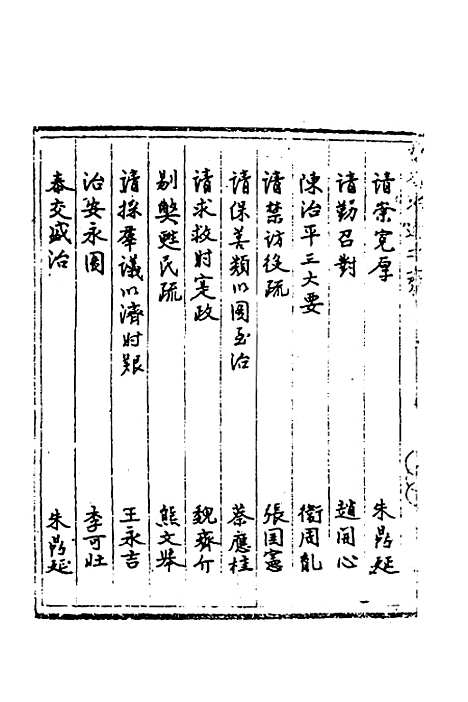 請崇寬厚 朱鼎延
請勤召對 趙開心
陳治平三大要 衛周胤
請禁訪役疏 張國憲
請保善類以圖至治 蔡應桂
請求救时定政 魏齊介
剔獘甦民疏 熊文举
請採羣議以濟时艱 王永吉
治安永圖 李可壯
泰交盛治 朱鼎延
一